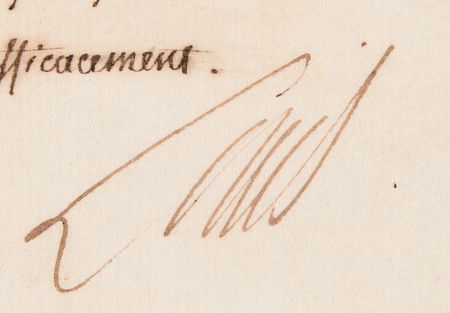 fficacement.
Louis